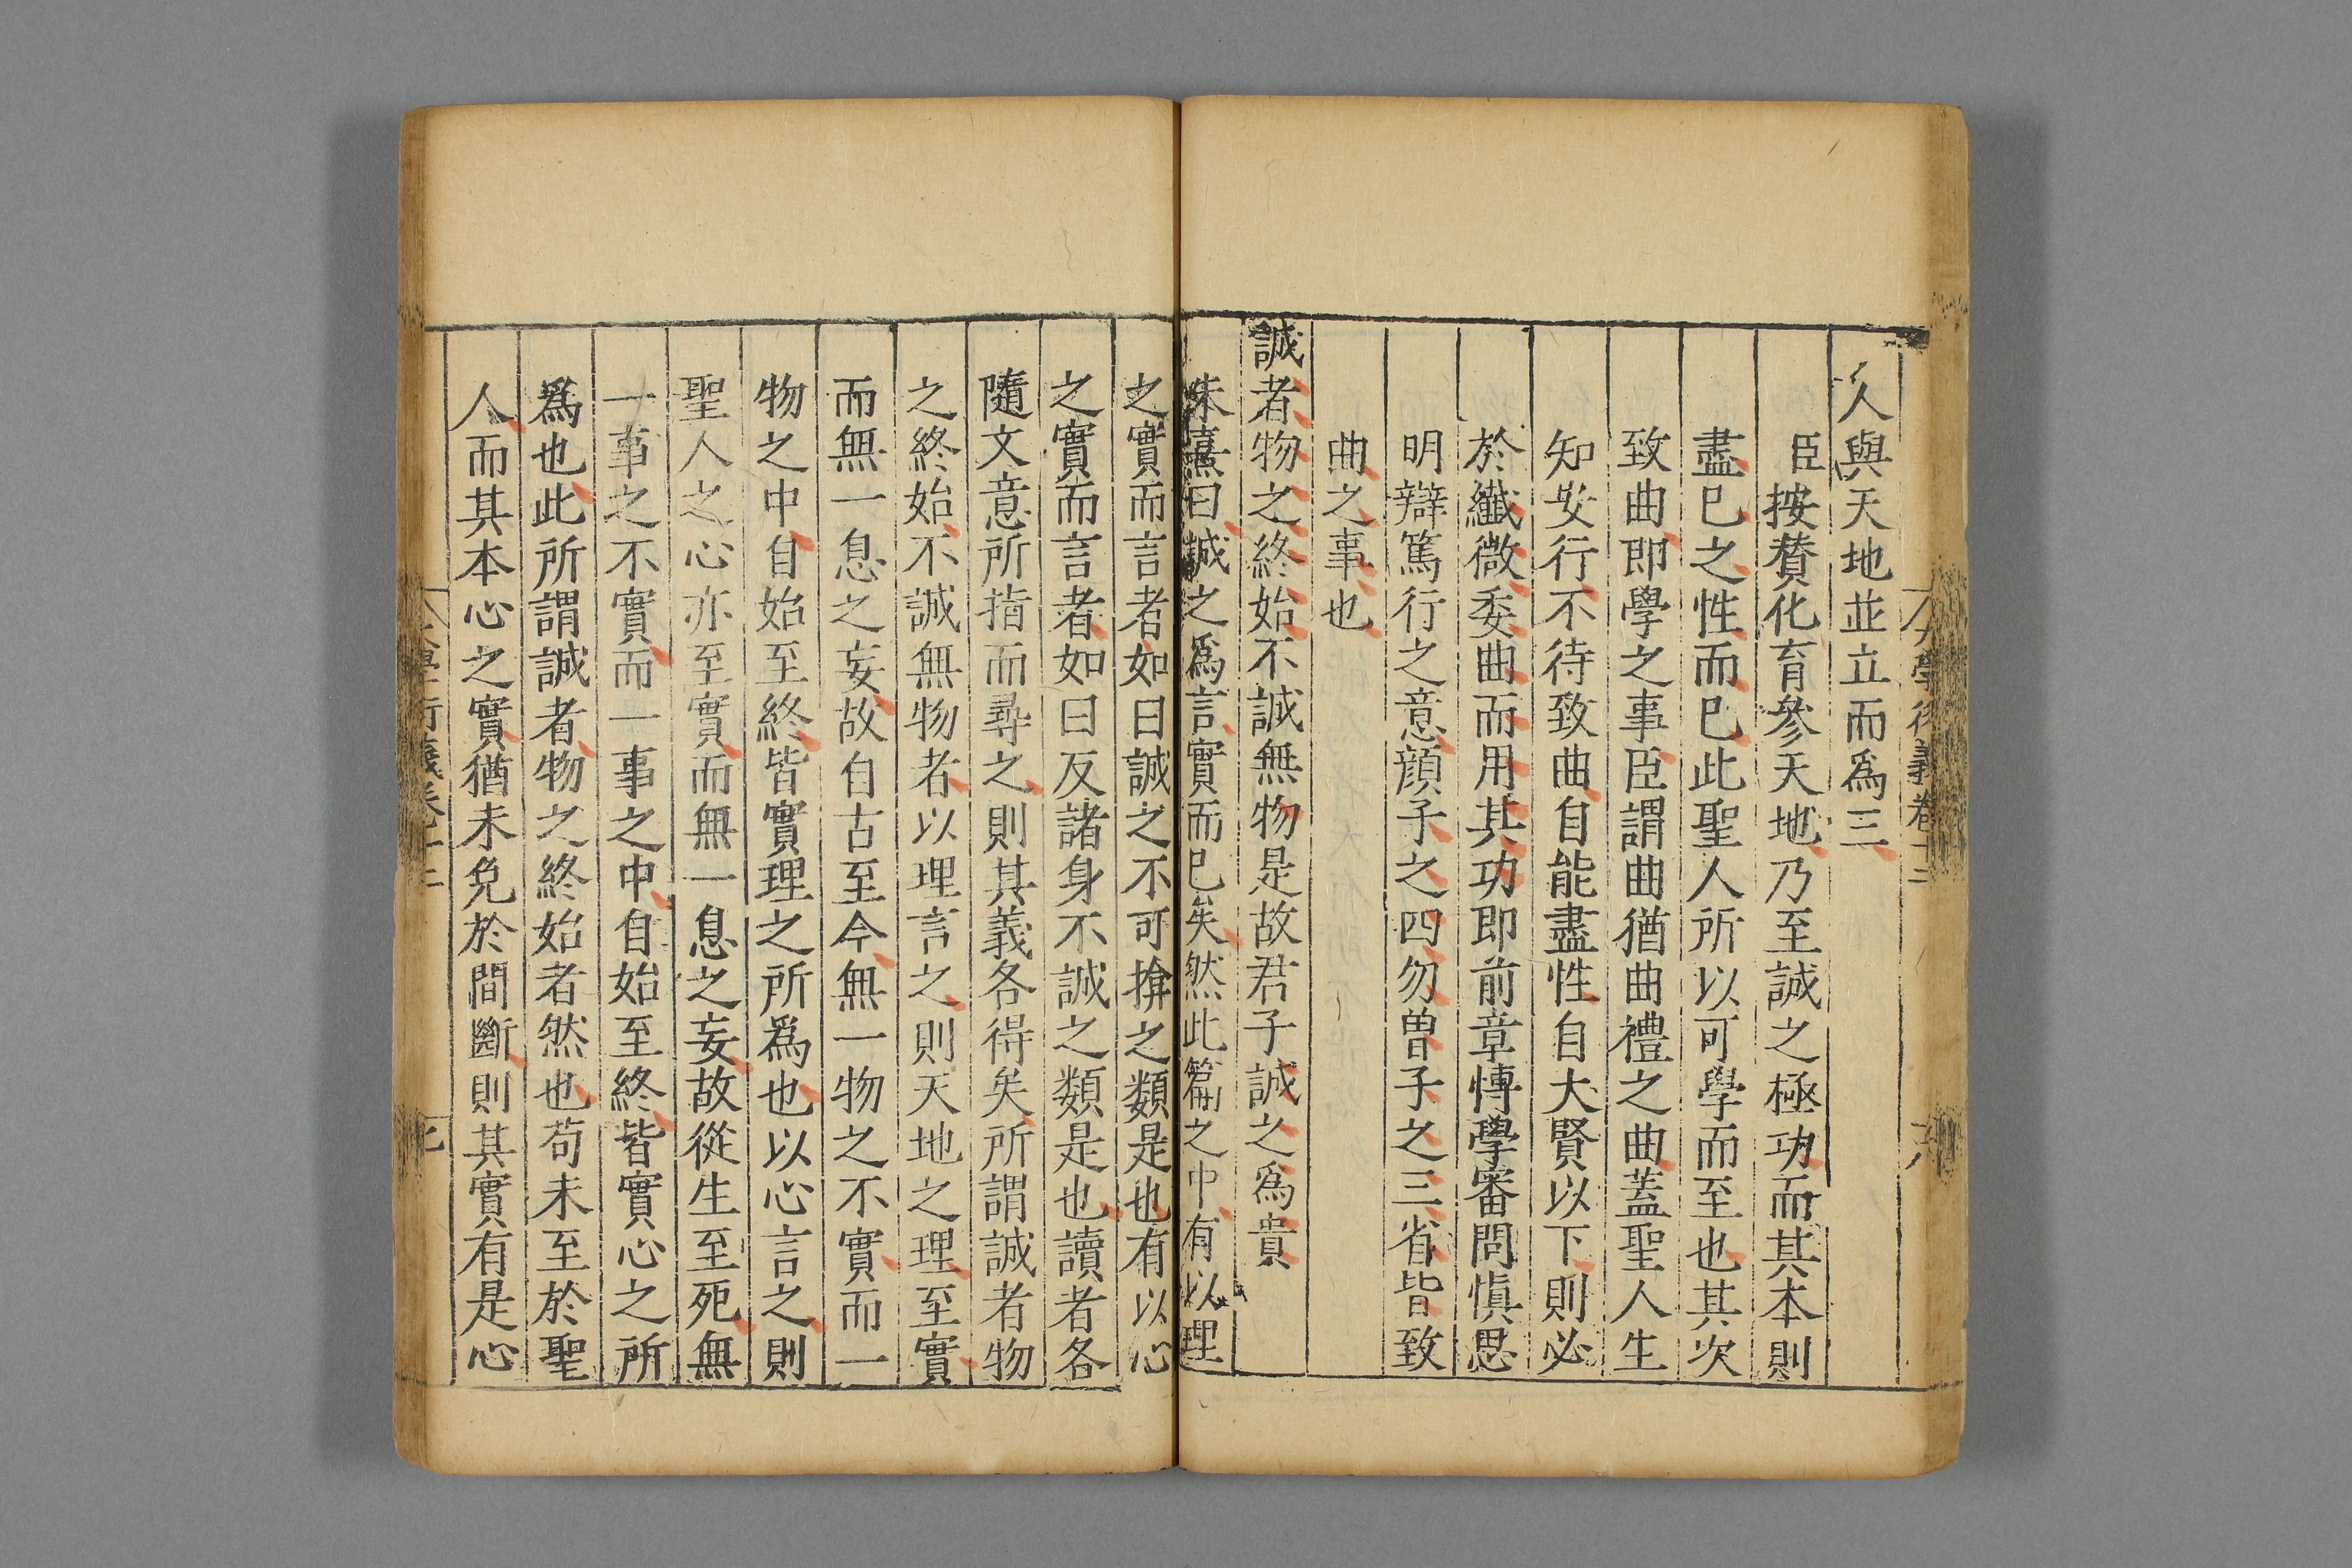 大學衍義卷十二
人與天地並立而爲三
臣按賛化育參天地乃至誠之極功而其本則
盡已之性而已此聖人所以可學而至也其次
致曲即學之事臣謂曲猶曲禮之曲蓋聖人生
知安行不待致曲自能盡性自大賢以下則必
於纎微委曲而用其功即前章愽學審問愼思
明辯篤行之意顔子之四勿曽子之三省皆致
曲之事也
誠者物之終始不誠無物是故君子誠之爲貴
朱熹曰誠之爲言實而已矣然此篇之中有以理
之實而言者如曰誠之不可揜之類是也有以心
之實而言者如曰反諸身不誠之類是也讀者各
隨文意所指而尋之則其義各得矣所謂誠者物
之終始不誠無物者以理言之則天地之理至實
而無一息之妄故自古至今無一物之不實而一
物之中自始至終皆實理之所爲也以心言之則
聖人之心亦至實而無一息之妄故從生至死無
一事之不實而一事之中自始至終皆實心之所
爲也此所謂誠者物之終始者然也苟未至於聖
人而其本心之實猶未免於間斷則其實有是心
大學衍義卷十二
七